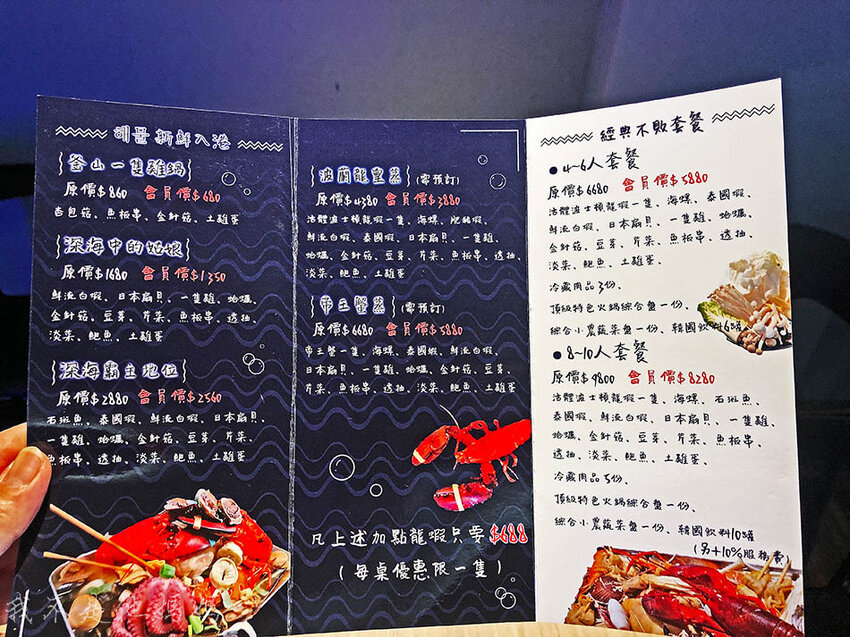 해물 新鮮入港
釜山一隻雞鍋
原價$860 會員價$680
杏包菇、魚板串、金針菇、土雞蛋
深海中的姑娘
原價$1680 會員價$1350
鮮活白蝦、日本扇貝、一隻雞、蛤蠣、
金針菇、豆芽、芹菜、魚板串、透抽、
淡菜、鮑魚、土雞蛋
深海霸主地位
原價$2880 會員價$2560
石斑魚、泰國蝦、鮮活白蝦、日本扇貝、
一隻雞、蛤蠣、金針菇、豆芽、芹菜、
魚板串、透抽、淡菜、鮑魚、土雞蛋
波蘭龍皇蒸 (需預訂)
原價$4380 會員價$3880
活體波士頓龍蝦一隻、海螺、肥豬蝦、
鮮活白蝦、泰國蝦、日本扇貝、一隻雞、
蛤蠣、金針菇、豆芽、芹菜、魚板串、透抽、
淡菜、鮑魚、土雞蛋
帝王蟹蒸 (需預訂)
原價$6680 會員價$5880
帝王蟹一隻、海螺、泰國蝦、鮮活白蝦、
日本扇貝、一隻雞、蛤蠣、金針菇、豆芽、
芹菜、魚板串、透抽、淡菜、鮑魚、土雞蛋
凡上述加點龍蝦只要$688
(每桌優惠限一隻)
經典不敗套餐
● 4~6人套餐
原價$6680 會員價$5880
活體波士頓龍蝦一隻、海螺、泰國蝦、
鮮活白蝦、日本扇貝、一隻雞、蛤蠣、
金針菇、豆芽、芹菜、魚板串、透抽、
淡菜、鮑魚、土雞蛋、
冷藏肉品3份、
頂級特色火鍋綜合盤一份、
綜合小農蔬菜盤一份、韓國飲料6罐
● 8~10人套餐
原價$9800 會員價$8280
活體波士頓龍蝦一隻、海螺、石斑魚、
泰國蝦、鮮活白蝦、日本扇貝、一隻雞、
蛤蠣、金針菇、豆芽、芹菜、魚板串、
透抽、淡菜、鮑魚、土雞蛋、
冷藏肉品5份、
頂級特色火鍋綜合盤一份、
綜合小農蔬菜盤一份、韓國飲料10罐
(另+10%服務費)